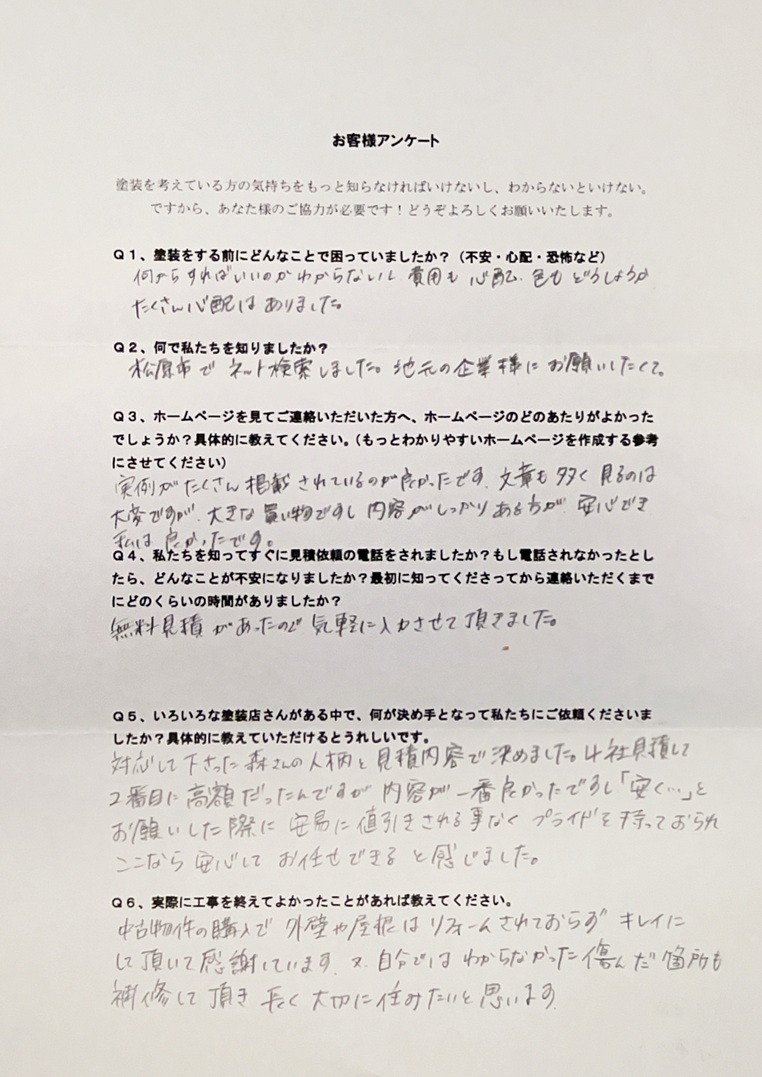 お客様アンケート
塗装を考えている方の気持ちをもっと知らなければいけないし、わからないといけない。
ですから、あなた様のご協力が必要です！どうぞよろしくお願いいたします。
Ｑ１、塗装をする前にどんなことで困っていましたか？（不安・心配・恐怖など）
何からすればいいのかわからないし、費用も心配、色もどうしようか
たくさん心配はありました。
Ｑ２、何で私たちを知りましたか？
松原市でネット検索しました。地元の企業様にお願いしたくて。
Ｑ３、ホームページを見てご連絡いただいた方へ、ホームページのどのあたりがよかった
でしょうか？具体的に教えてください。（もっとわかりやすいホームページを作成する参考
にさせてください）
実例がたくさん掲載されているのが良かったです。文章も多く見るのは
大変ですが、大きな買い物ですし内容がしっかりある方が、安心でき
私は良かったです。
Ｑ４、私たちを知ってすぐに見積依頼の電話をされましたか？もし電話されなかったとし
たら、どんなことが不安になりましたか？最初に知ってくださってから連絡いただくまで
にどのくらいの時間がありましたか？
無料見積があったので気軽に入力させて頂きました。
Ｑ５、いろいろな塗装店さんがある中で、何が決め手となって私たちにご依頼くださいま
したか？具体的に教えていただけるとうれしいです。
対応して下さった森さんの人柄と見積内容で決めました。4社見積して
2番目に高額だったんですが内容が一番良かったですし「安く…」と
お願いした際に安易に値引きされる事なくプライドを持っておられ
ここなら安心してお任せできると感じました。
Ｑ６、実際に工事を終えてよかったことがあれば教えてください。
中古物件の購入で外壁や屋根はリフォームされておらずキレイに
して頂いて感謝しています。又、自分ではわからなかった傷んだ箇所も
補修して頂き長く大切に住みたいと思います。